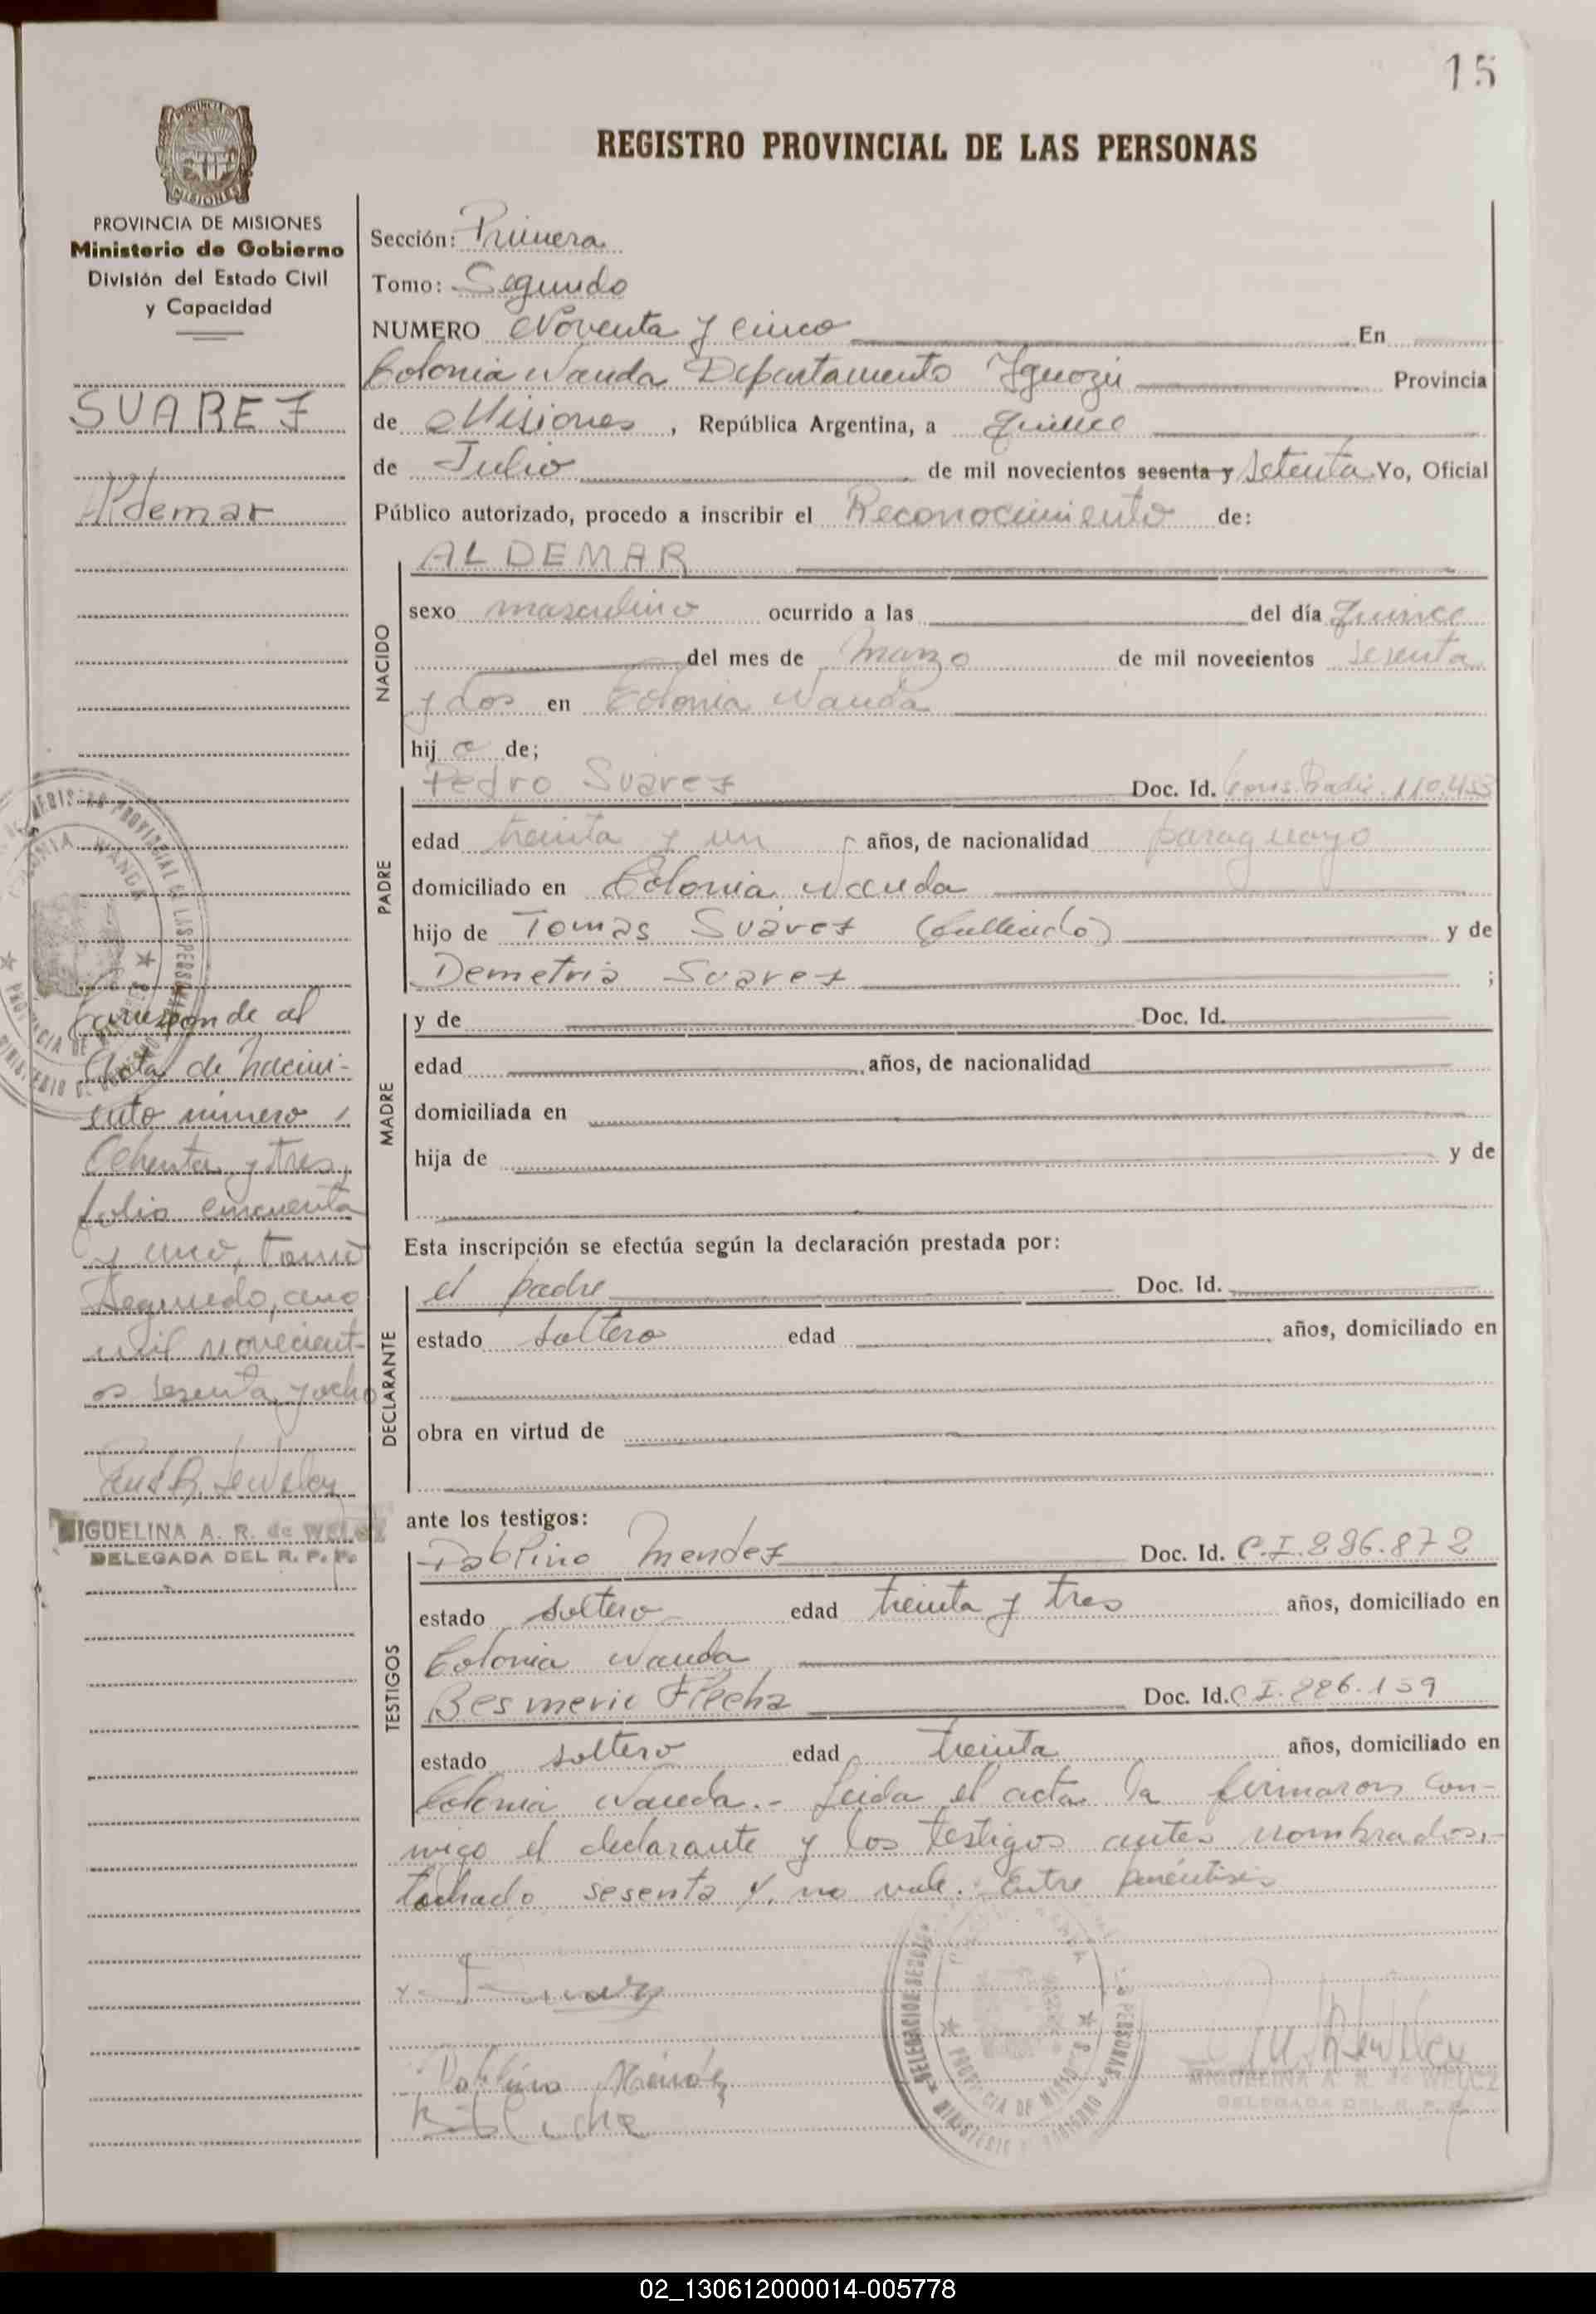 15
PROVINCIA DE MISIONES
Ministerio de Gobierno
División del Estado Civil
y Capacidad
SUAREZ
Aldemar
Corresponde al
Acta de nacimi-
ento número
Ochenta y tres,
folio cincuenta
y uno, tomo
Segundo, año
mil novecient-
os sesenta y ocho
MIGUELINA A. R. de WELCZ
DELEGADA DEL R. P. P.
REGISTRO PROVINCIAL DE LAS PERSONAS
Sección: Primera
Tomo: Segundo
NUMERO Noventa y cinco En
Colonia Wanda Departamento Iguazú Provincia
de Misiones, República Argentina, a quince
de Julio de mil novecientos sesenta y Setenta Yo, Oficial
Público autorizado, procedo a inscribir el Reconocimiento de:
NACIDO
ALDEMAR
sexo masculino ocurrido a las del día quince
del mes de Marzo de mil novecientos sesenta
y dos en Colonia Wanda
hij o de;
PADRE
Pedro Suárez Doc. Id. Cons. Radic. 110.453
edad treinta y un años, de nacionalidad paraguayo
domiciliado en Colonia Wanda
hijo de Tomas Suárez (fallecido) y de
Demetria Suarez ;
MADRE
y de Doc. Id.
edad años, de nacionalidad
domiciliada en
hija de y de
Esta inscripción se efectúa según la declaración prestada por:
DECLARANTE
el padre Doc. Id.
estado soltero edad años, domiciliado en
obra en virtud de
ante los testigos:
TESTIGOS
Pablino Mendez Doc. Id. C.I. 236.872
estado soltero edad treinta y tres años, domiciliado en
Colonia Wanda
Flecha Doc. Id. C.I. 226.159
estado soltero edad treinta años, domiciliado en
Colonia Wanda.- Leida el acta la firmaron con-
migo el declarante y los testigos antes nombrados.-
tachado sesenta y. no vale. Entre paréntisis
Pablino Méndez
MIGUELINA A. R. de WELCZ
DELEGADA DEL R. P. P.
02_130612000014-005778